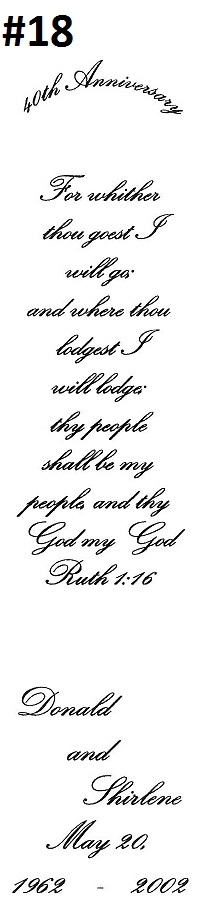 #18
40th Anniversary
For whither
thou goest I
will go;
and where thou
lodgest I
will lodge;
thy people
shall be my
people, and thy
God my God
Ruth 1:16
Donald
and
Shirlene
May 20,
1962 - 2002